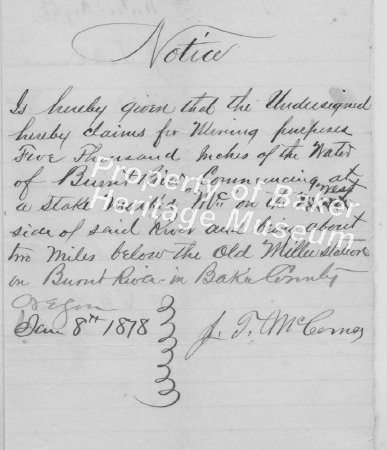 Notice
Is hereby given that the Undersigned
hereby claims for Mining purposes
Five Thousand Inches of the Water
of Burnt River Commencing at
a stake marked "Mc" on the West
side of said River and being about
two Miles below the Old Miller Station
on Burnt River in Baker County
Oregon
Jan 8th 1878
J. T. McComas
Property of Baker
Heritage Museum